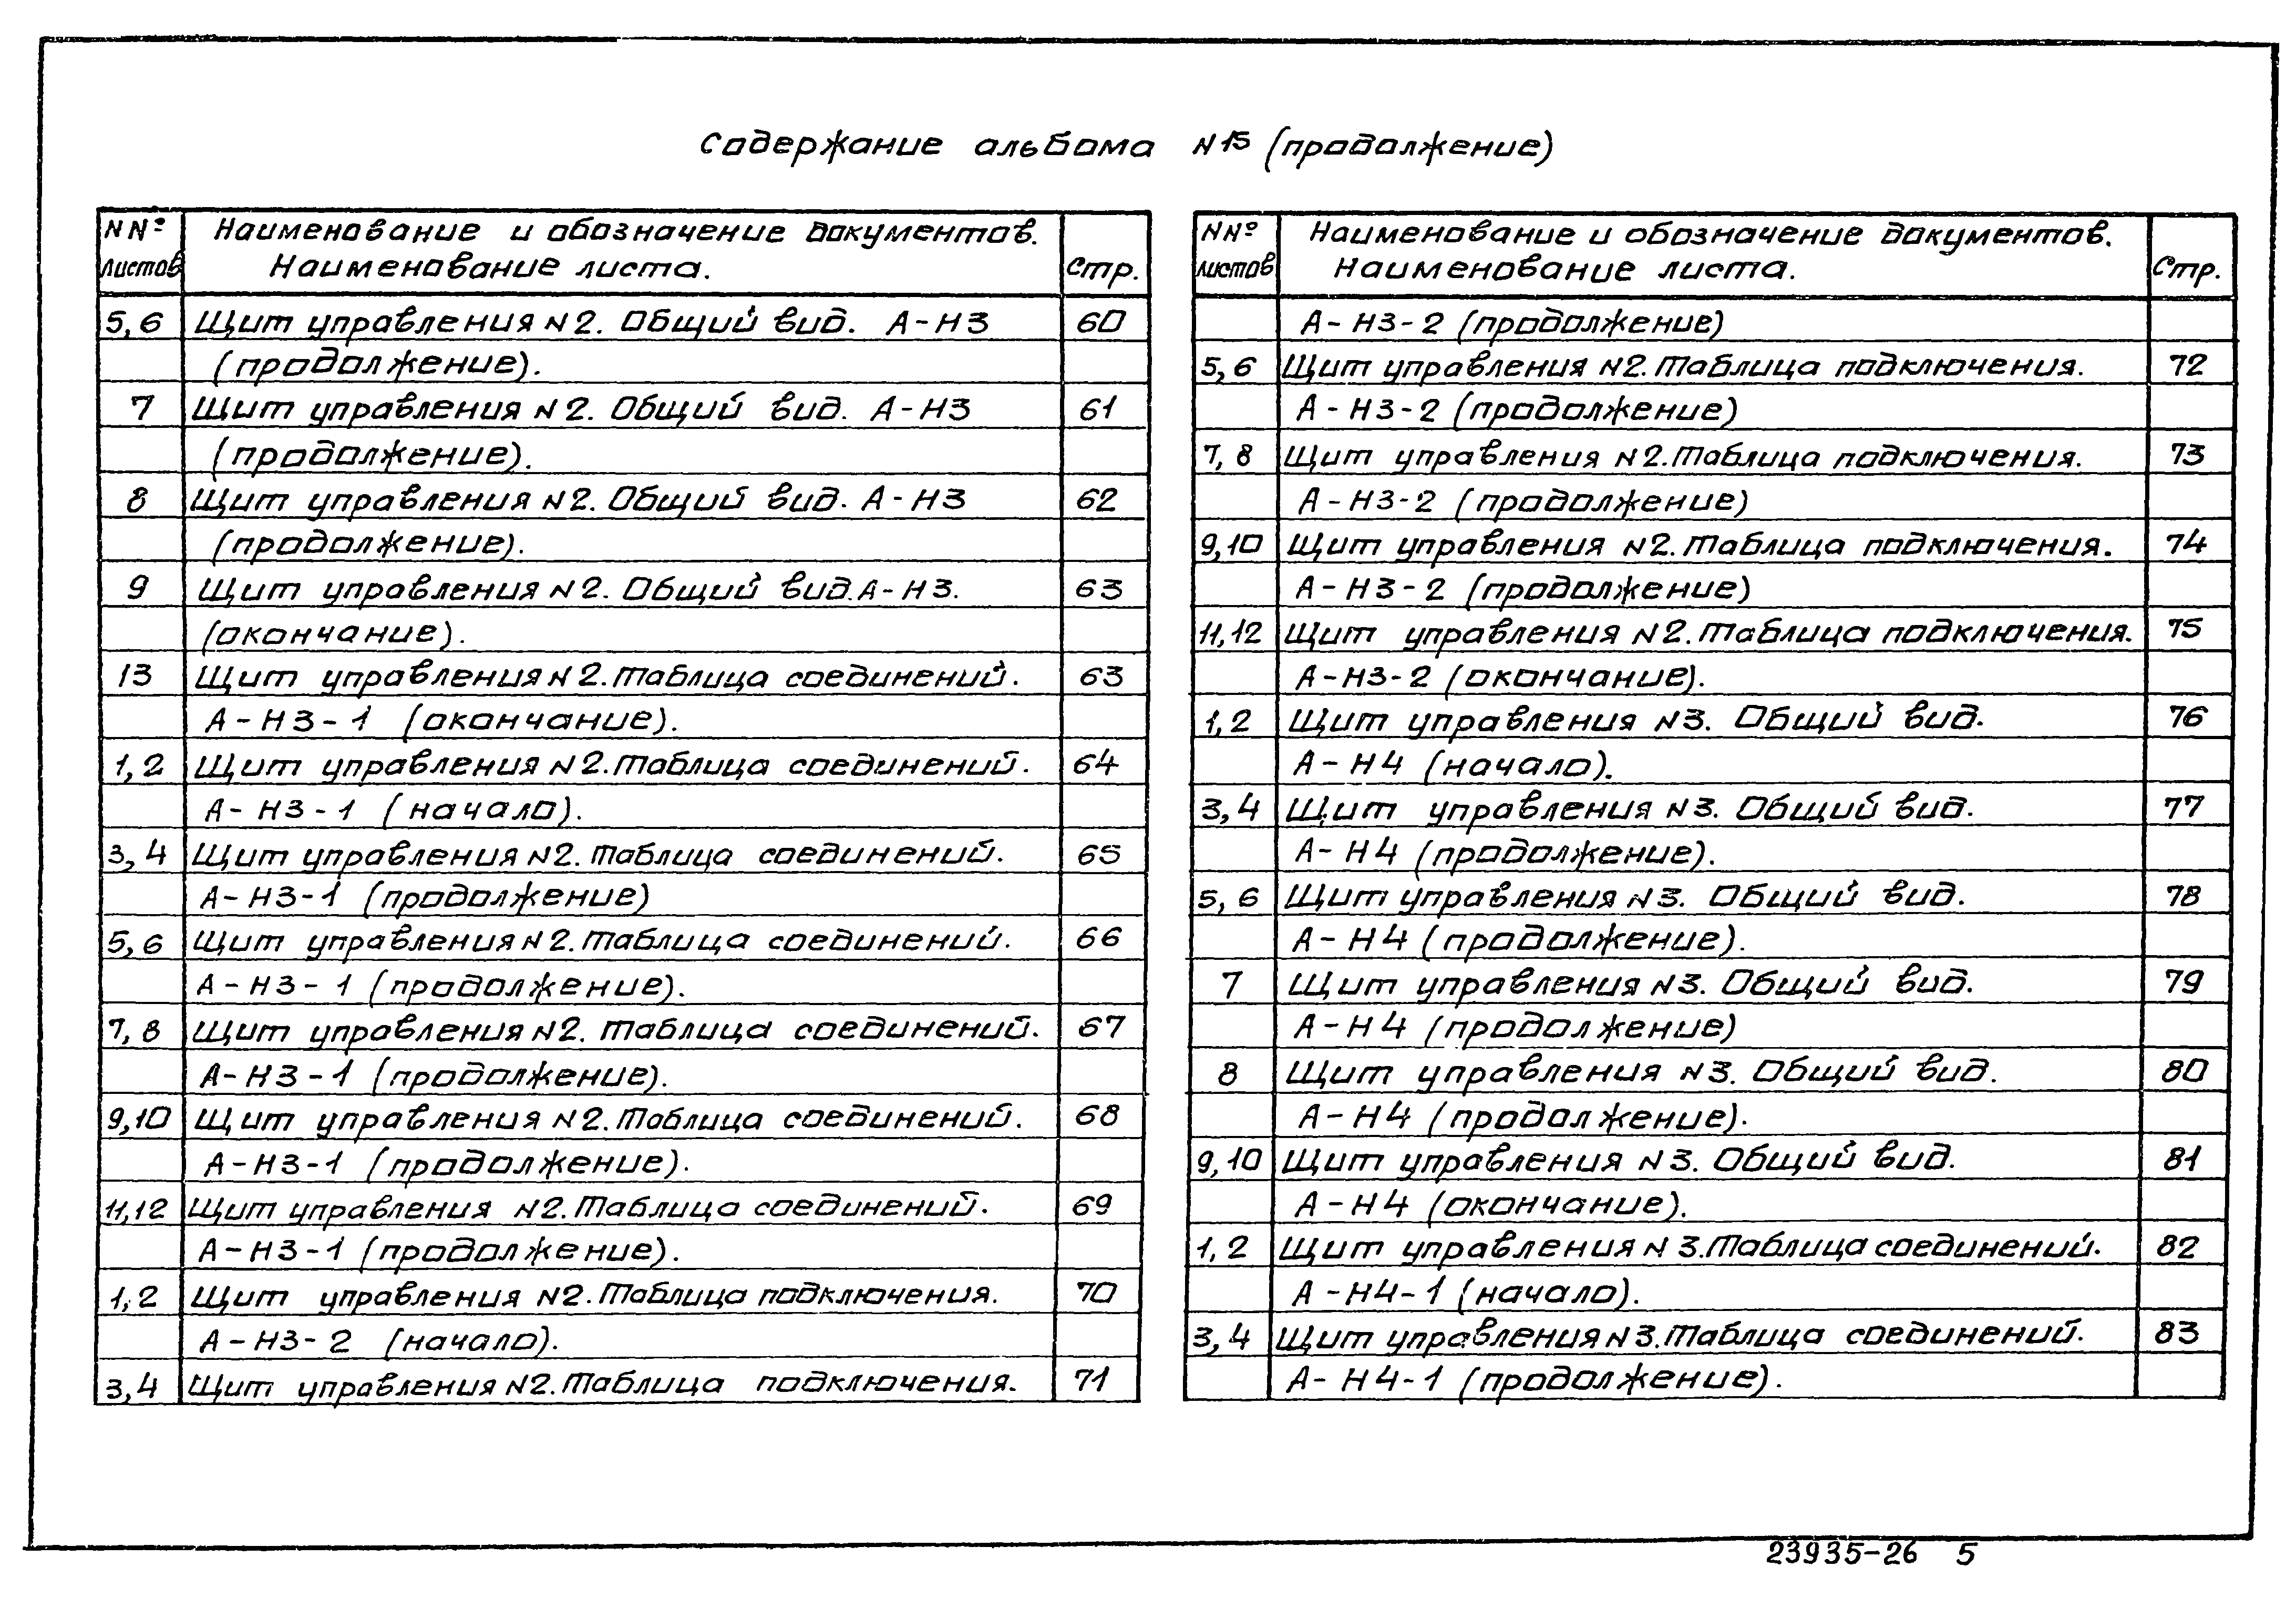 Содержание альбома N15 (продолжение)
NNº Наименование и обозначение документов.
листов Наименование листа. Стр.
5,6 Щит управления N2. Общий вид. А-Н3 60
(продолжение).
7 Щит управления N2. Общий вид. А-Н3 61
(продолжение).
8 Щит управления N2. Общий вид. А-Н3 62
(продолжение).
9 Щит управления N2. Общий вид. А-Н3. 63
(окончание).
13 Щит управления N2. Таблица соединений. 63
А-Н3-1 (окончание).
1,2 Щит управления N2. Таблица соединений. 64
А-Н3-1 (начало).
3,4 Щит управления N2. Таблица соединений. 65
А-Н3-1 (продолжение)
5,6 Щит управления N2. Таблица соединений. 66
А-Н3-1 (продолжение).
7,8 Щит управления N2. Таблица соединений. 67
А-Н3-1 (продолжение).
9,10 Щит управления N2. Таблица соединений. 68
А-Н3-1 (продолжение).
11,12 Щит управления N2. Таблица соединений. 69
А-Н3-1 (продолжение).
1,2 Щит управления N2. Таблица подключения. 70
А-Н3-2 (начало).
3,4 Щит управления N2. Таблица подключения. 71
NNº Наименование и обозначение документов.
листов Наименование листа. Стр.
А-Н3-2 (продолжение)
5,6 Щит управления N2. Таблица подключения. 72
А-Н3-2 (продолжение)
7,8 Щит управления N2. Таблица подключения. 73
А-Н3-2 (продолжение)
9,10 Щит управления N2. Таблица подключения. 74
А-Н3-2 (продолжение)
11,12 Щит управления N2. Таблица подключения. 75
А-Н3-2 (окончание).
1,2 Щит управления N3. Общий вид. 76
А-Н4 (начало).
3,4 Щит управления N3. Общий вид. 77
А-Н4 (продолжение).
5,6 Щит управления N3. Общий вид. 78
А-Н4 (продолжение).
7 Щит управления N3. Общий вид. 79
А-Н4 (продолжение)
8 Щит управления N3. Общий вид. 80
А-Н4 (продолжение).
9,10 Щит управления N3. Общий вид. 81
А-Н4 (окончание).
1,2 Щит управления N3. Таблица соединений. 82
А-Н4-1 (начало).
3,4 Щит управления N3. Таблица соединений. 83
А-Н4-1 (продолжение).
23935-26 5